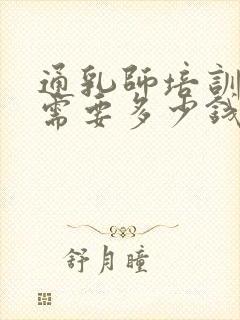 通乳师培訓
需要多少钱
舒月瞳